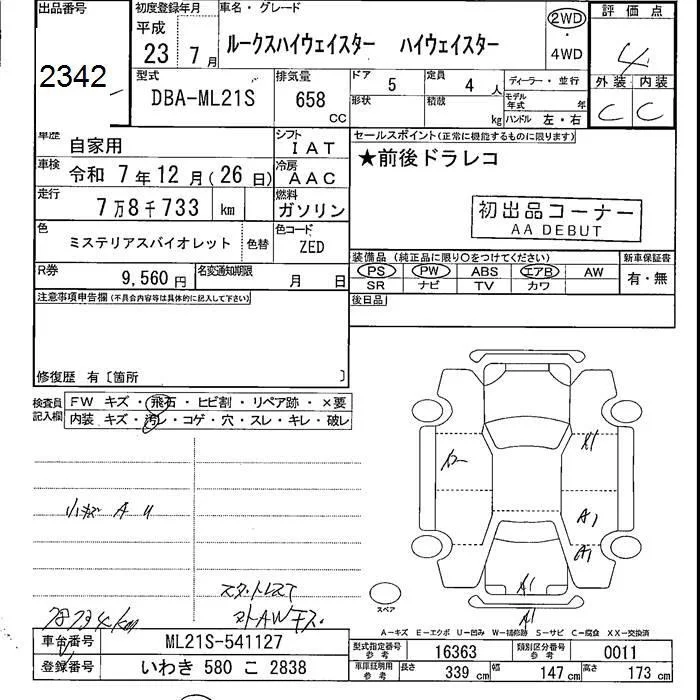 出品番号 初度登録年月 車名・グレード 2WD 評価点
平成
23 7月 ルークスハイウェイスター ハイウェイスター ・ 4
4WD 外装 内装
2342 型式 排気量 ドア 5 定員 4人 ディーラー・並行 C C
DBA-ML21S 658 CC 形状 積載 kg モデル年式 年
ハンドル 左・右
車歴 自家用 シフト IAT セールスポイント(正常に機能するものに限ります)
車検 令和 7年 12月(26日) 冷房 AAC ★前後ドラレコ
走行 7万8千733 km 燃料 ガソリン 初出品コーナー
AA DEBUT
色 ミステリアスバイオレット 色替 色コード ZED
装備品(純正品に限り○をつけてください) 新車保証書
R券 9,560円 名変通知期限 月 日 PS PW ABS エアB AW 有・無
SR ナビ TV カワ
注意事項申告欄(不具合内容等は具体的に記入して下さい) 後日品
修復歴 有〔箇所 〕
検査員記入欄 FW キズ・飛石・ヒビ割・リペア跡・×要
内装 キズ・汚レ・コゲ・穴・スレ・キレ・破レ
A1
A1
A1
A1
小キズ A U
スタットレス
スペア
A-キズ E-エクボ U-凹み W-補修跡 S-サビ C-腐食 XX-交換済
車台番号 ML21S-541127 型式指定番号 参考 16363 類別区分番号 参考 0011
登録番号 いわき 580 こ 2838 車庫証明用 参考 長さ 339 cm 幅 147 cm 高さ 173 cm